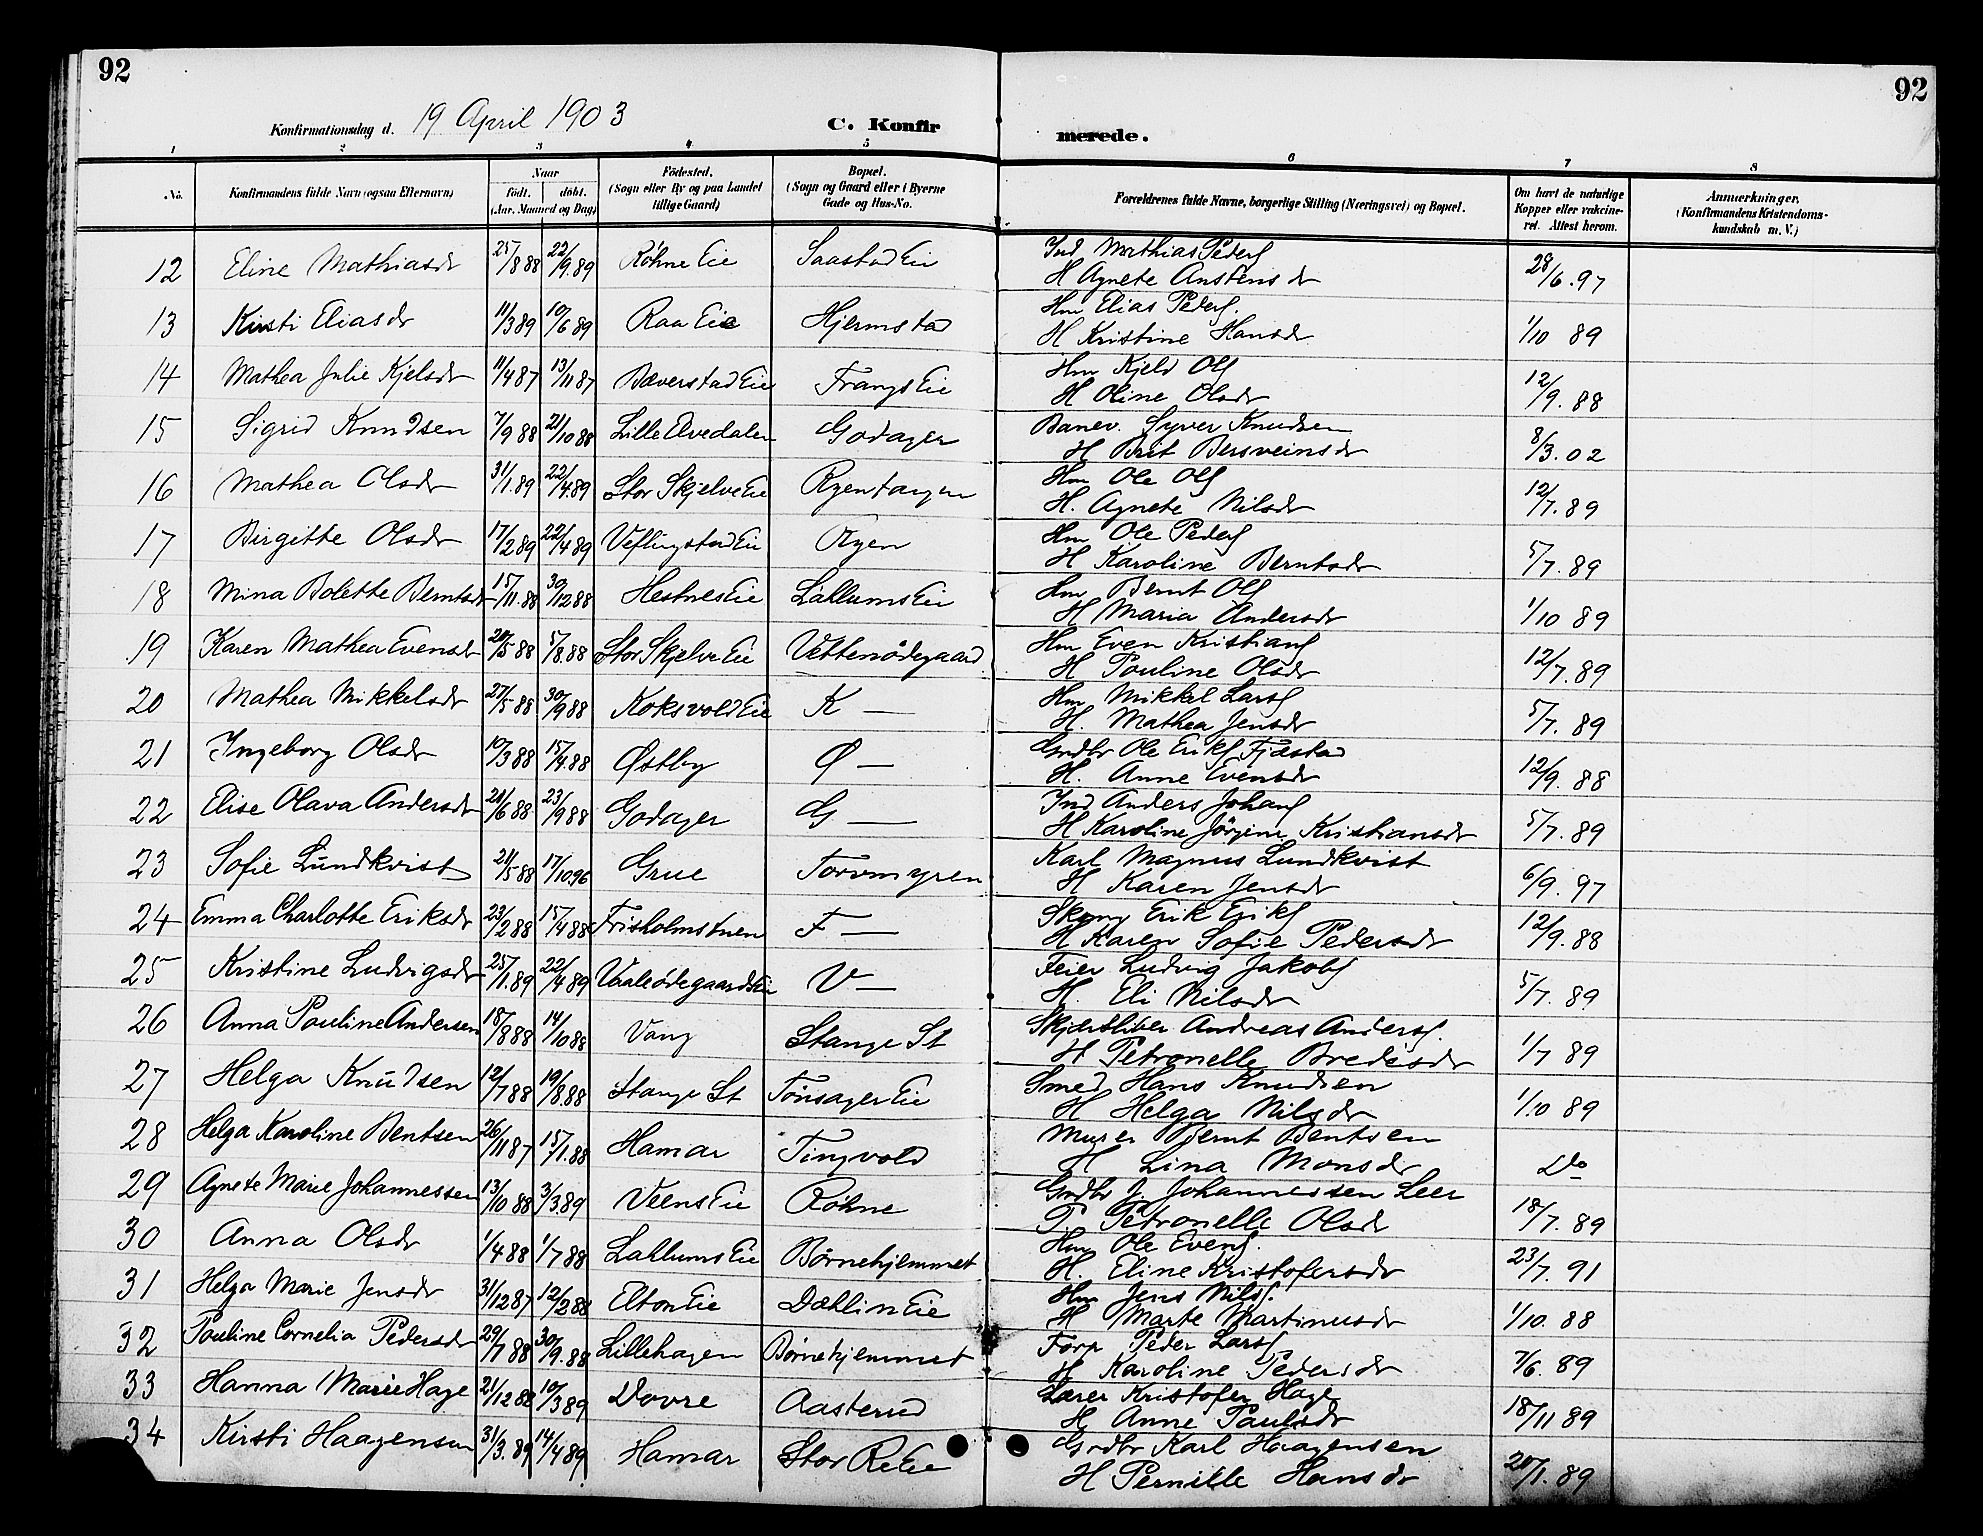 92
92
Konfirmationsdag d. 19 April 1903
C. Konfirmerede.
1 2 3 4 5 6 7 8
No. Konfirmandens fulde Navn (ogsaa Efternavn) Naar født. døbt. (Aar. Maaned og Dag) Fødested. (Sogn eller By og paa Landet tillige Gaard) Bopæl. (Sogn og Gaard eller i Byerne Gade og Hus-No. Forældrenes fulde Navne, borgerlige Stilling (Næringsvei) og Bopæl. Om havt de naturlige Kopper eller vakcineret. Attest herom. Anmærkninger, (Konfirmandens Kristendomskundskab m. V.)
12 Eline Mathiasdr 25/8 88 22/9.89 Røhne Eie Saastad Eie Ind Mathias Peders
H Agnete Anstensdr 28/6.97
13 Kirsti Eliasdr 11/3 89 10/6 89 Raa Eie Hjermstad Hm Elias Peders.
H Kristine Hansdr 1/10 89
14 Mathea Julie Kjelsdr 11/4 87 13/11 87 Bæverstad Eie Frangs Eie Hm Kjeld Ols
H Oline Olsdr 12/9.88
15 Sigrid Knudsen 7/9 88 21/10 88 Lille Elvedalen Godager Banev. Syver Knudsen
H Brit Bersveinsdr 8/3.02
16 Mathea Olsdr 31/1.89 22/4.89 Stor Skjelve Eie Ryentangen Hm Ole Ols
H. Agnete Nilsdr 12/7.89
17 Birgitte Olsdr 17/2 89 22/4 89 Veflingstad Eie Ryen Hm Ole Peders
H Karoline Berntsdr 5/7.89
18 Mina Bolette Berntsdr 15/11.88 30/12 88 Hestnes Eie Lallums Eie Hm Bernt Ols
H Maria Andersdr 1/10 89
19 Karen Mathea Evensdr 28/5 88 5/8.88 Stor Skjelve Eie Vettenødegaard Hm Even Kristians
H Pouline Olsdr 12/7.89
20 Mathea Mikkelsdr 27/5 88 30/9 88 Koksvold Eie K — Hm Mikkel Lars
H. Mathea Jensdr 5/7.89
21 Ingeborg Olsdr 10/3 88 15/4.88 Østby Ø — Grdbr Ole Eriks Fjæstad
H. Anne Evensdr 12/9.88
22 Elise Olava Andersdr 20/6 88 23/9 88 Godager G — Ind Anders Johans
H Karoline Jørgine Kristiansdr 5/7.89
23 Sofie Lundkvist 21/5 88 17/10 96 Grue Torvmyren Karl Magnus Lundkvist
H Karen Jensdr 6/9.97
24 Emma Charlotte Eriksdr 23/2 88 15/4 88 Frisholmstuen F — Erik Eriks
H Karen Sofie Pedersdr 12/9.88
25 Kristine Ludvigsdr 25/1.89 22/4 89 Vaaleødegaards Eie V — Feier Ludvig Jakobs
H. Eli Nilsdr 5/7.89
26 Anna Pouline Andersen 18/8 88 14/10 88 Vang Stange St Skjærsliber Andreas Anders.
H Petronelle Bredesdr 1/7 89
27 Helga Knudsen 12/7 88 19/8.88 Stange St Tønsager Eie Smed Hans Knudsen
H Helga Nilsdr 1/10 89
28 Helga Karoline Bentsen 26/11 87 15/1.88 Hamar Tingvold Murer Bernt Bentsen
H Lina Monsdr Do
29 Agnete Marie Johannessen 13/10 88 3/3.89 Veens Eie Røhne Grdbr J. Johannessen Leer
P. Petronelle Olsdr 18/7.89
30 Anna Olsdr 1/4 88 1/7 88 Lallums Eie Børnehjemmet Hm Ole Evens.
H. Eline Kristofersdr 23/7.91
31 Helga Marie Jensdr 31/12 87 12/2 88 Elton Eie Dæhlin Eie Hm Jens Nils.
H Marte Martinusdr 1/10.88
32 Pouline Cornelia Pedersdr 29/7 88 30/9.88 Lillehagen Børnehjemmet Forp Peder Lars
H Karoline Pedersdr 7/6.89
33 Hanna Marie Hage 21/12 88 10/3 89 Dovre Aasterud Lærer Kristofer Hage
H Anne Paulsdr 18/11 89
34 Kirsti Haagensen 31/3.89 14/4 89 Hamar Stor Re Eie Grdbr Karl Haagensen
H Pernille Hansdr 20/1.89